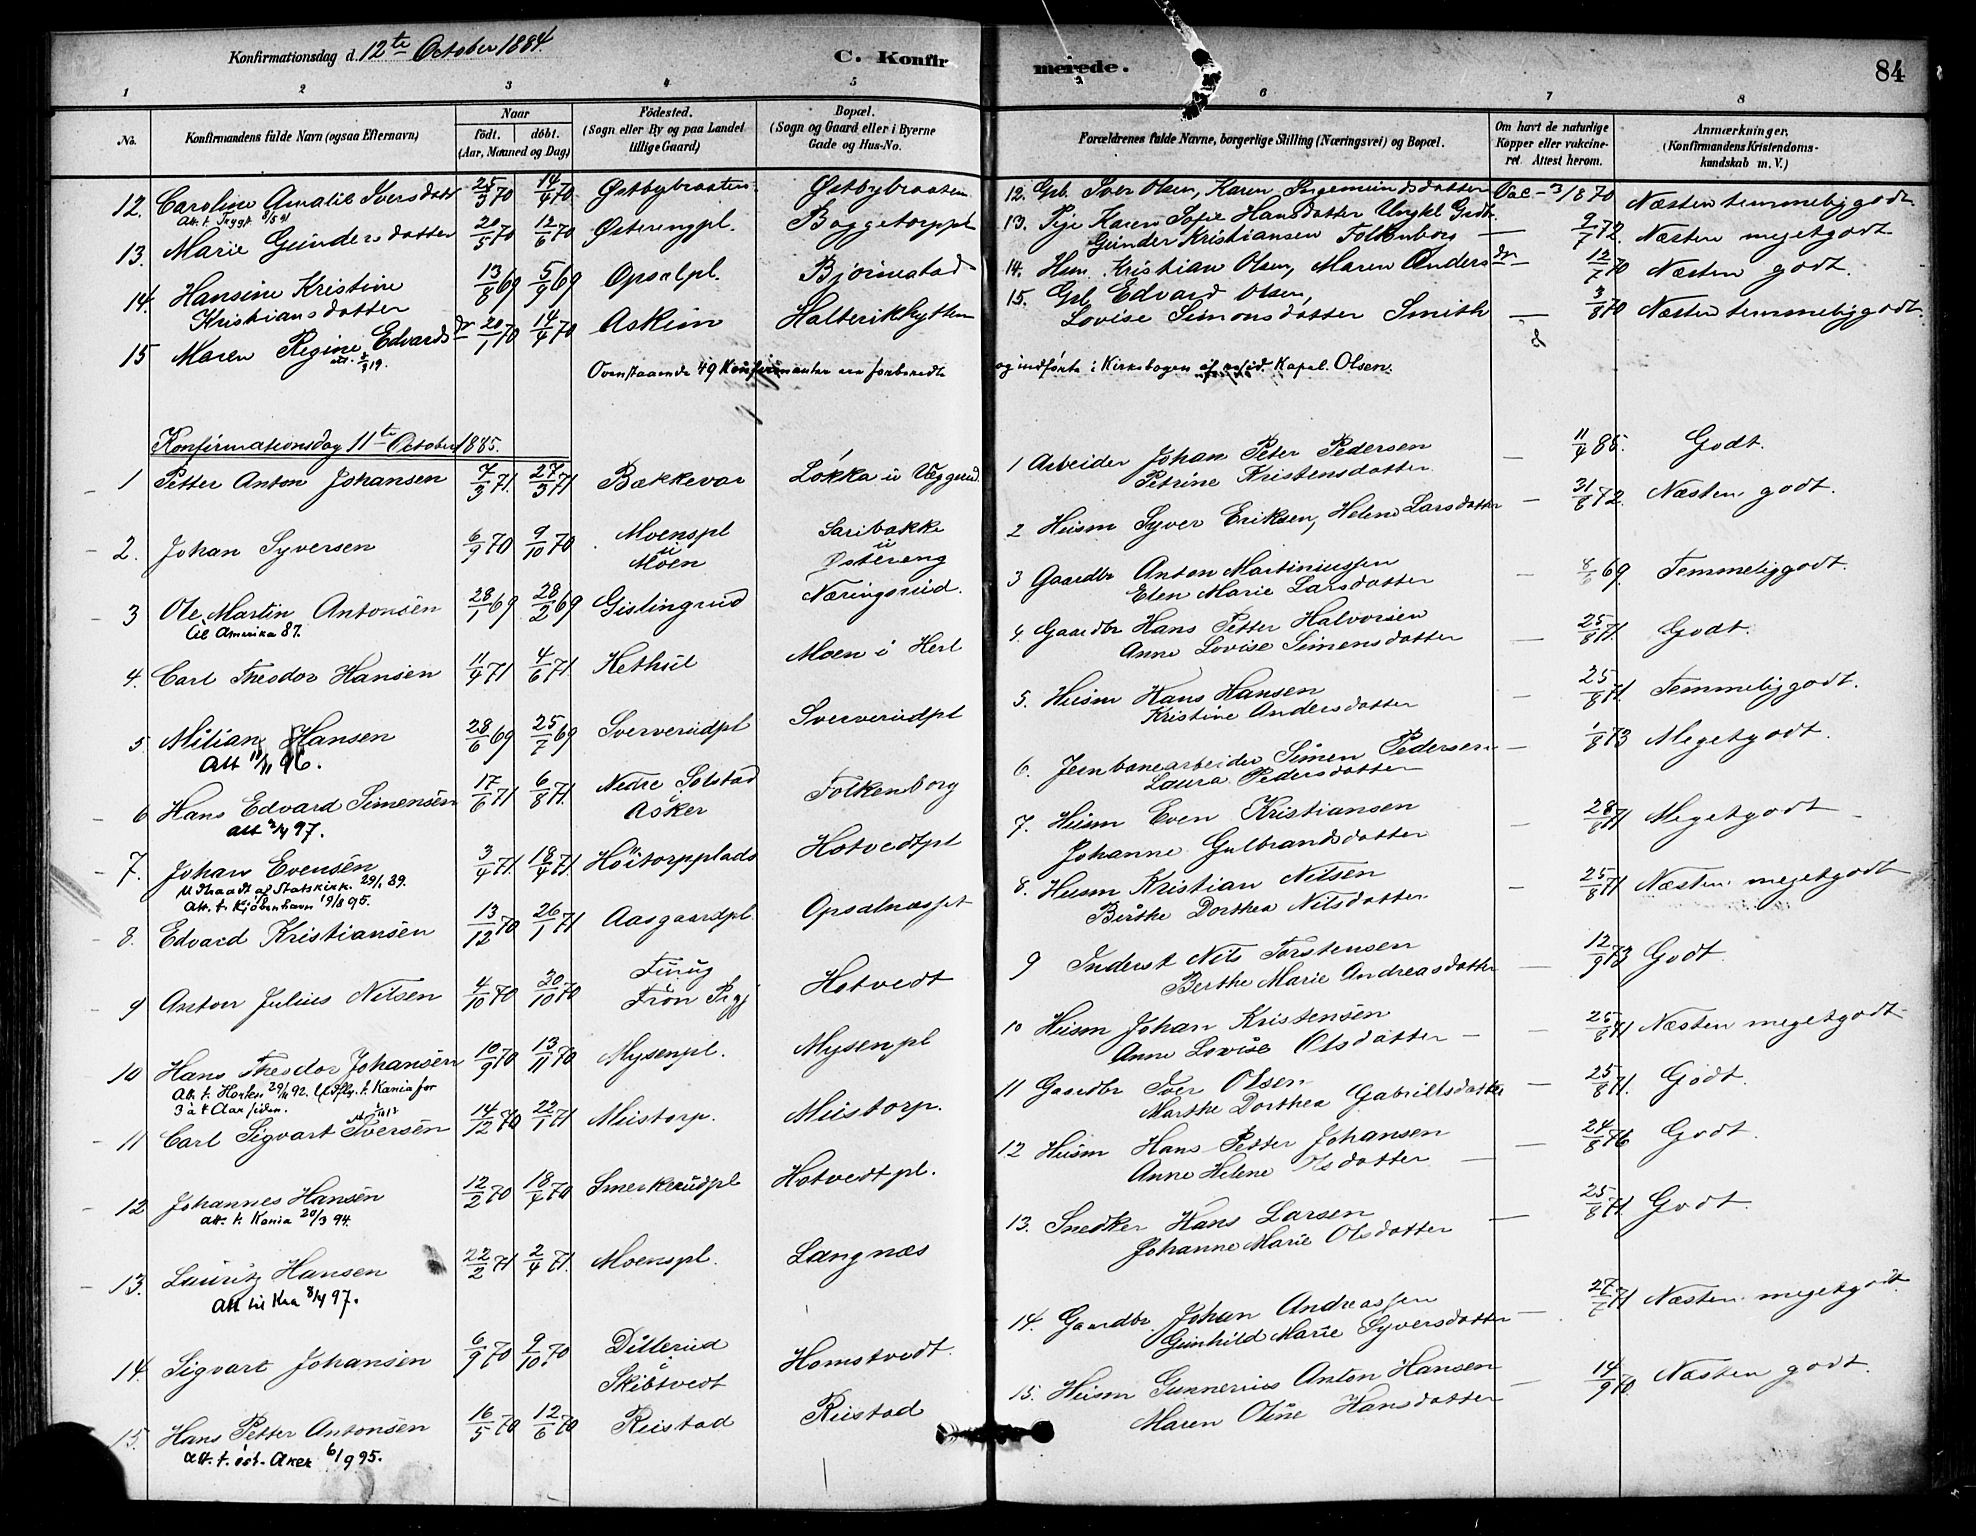 Konfirmationsdag d. 12te October 1884.
C. Konfirmerede.
84
1 2 3 4 5 6 7 8
No.
Konfirmandens fulde Navn (ogsaa Efternavn)
Naar
födt. döbt.
(Aar, Maaned og Dag)
Födested.
(Sogn eller By og paa Landet
tillige Gaard)
Bopæl.
(Sogn og Gaard eller i Byerne
Gade og Hus-No.
Forældrenes fulde Navne, borgerlige Stilling (Næringsvei) og Bopæl.
Om havt de naturlige
Kopper eller vakcine-
ret. Attest herom.
Anmærkninger.
(Konfirmandens Kristendoms-
kundskab m. V.)
12. Caroline Amalie Iversdatt 25/3 70 14/4 70 Østbybraaten Østbybraaten 12. Gb. Iver Olsen, Karen Ingemundsdatter Vac - 3/8 70 Næsten temmelig godt
13. Marie Gundersdatter 20/5 70 12/6 70 Østerengpl. Baggetorppl 13. Pige Karen Sofie Hansdatter Ungkl
Gunder Kristiansen Folkenborg — 9/7 72. Næsten meget godt
14. Hansine Kristine
Kristiansdatter 13/8 69 5/9 69 Opsalpl. Bjørnestad 14. Husm. Kristian Olsen, Maren Andersdr — 12/7 70 Næsten godt.
15 Maren Regine Edvardsdr 20/1 70 14/4 70 Askim 15. Gb Edvard Olsen,
Lovise Simonsdatter Smith — 3/8 70 Næsten temmelig godt.
Ovenstaaende 49 Konfirmanter ere forberedte og indførte i Kirkebogen af resid. Kapel. Olsen.
Konfirmationsdag 11te October 1885.
1 Petter Anton Johansen 7/3 71. 27/3 71 Bækkevar Løkka u Væggerud 1 Arbeider Johan Peter Pedersen
Petrine Kristensdatter — 11/4 85. Godt.
2. Johan Syversen 6/9 70 9/10 70 Moenspl
u
Moen Saribakke
u
Østereng 2 Husm Syver Eriksen, Helene Larsdatter — 31/8 72. Næsten godt.
3 Ole Martin Antonsen 28/1 69 28/2 69 Gislingrud Næringsrud. 3 Gaardbr Anton Martiniussen
Elen Marie Larsdatter — 69 Temmelig godt.
til Amerika 87.
4. Carl Theodor Hansen 11/4 71 4/6 71 Kethul Moen i Herl 4. Gaardbr Hans Petter Halvorsen
Anne Lovise Simensdatter — 25/8 71. Godt.
5 Milian Hansen 28/6 69 25/7 69 Sververudpl Sververudpl 5. Husm Hans Hansen
Kristine Andersdatter — 25/8 71 Temmelig godt.
Att 11/11 96.
6 Hans Edvard Simensen 17/6 71 6/8 71. Nedre Solstad
i
Asker Folkenborg 6. Jernbanearbeider Simen Pedersen
Laura Pedersdatter — 1/8 73 Meget godt.
att 2/4 97.
7. Johan Evensen 3/4 71. 18/4 71 Høitorpplads Hotvedtpl 7. Husm Even Kristiansen
Johanne Gulbrandsdatter — 28/8 71 Meget godt
Udtraadt af Statskirk. 29/1 89.
Att. t. Kjøbenhavn 19/8 95.
8. Edvard Kristiansen 13/12 70 26/1 71 Aasgaardpl. Opsalnæsset 8. Husm Kristian Nilsen
Birthe Dorthea Nilsdatter — 25/8 71 Næsten meget godt
9 Anton Julius Nilsen 4/10 70 30/10 70 Hotvedt 9 Inderst Nils Torstensen
Berthe Marie Andreasdatter — 12/9 73 Godt
10 Hans Theodor Johansen 10/9 70 13/11 70 Mysenpl. Mysenpl 10 Husm Johan Kristensen
Anne Lovise Olsdatter — 25/8 71 Næsten meget godt
Att. t. Horten 29/11 92. Udfly. t. Kania for
3 à 4 Aar siden.
11 Carl Sigvart Iversen 14/12 70 22/1 71 Mustorp. Mustorp. 11 Gaardbr Iver Olsen
Marthe Dorthea Gabrielsdatter — 25/8 71. Godt.
12 Johannes Hansen 12/2 70 18/4 70 Smerkerudpl Hotvedtpl. 12 Husm Hans Petter Johansen
Anne Helene Olsdatter — 24/8 76 Godt.
att. t. Kania 20/3 94.
13. Lauritz Hansen 22/2 71 2/4 71. Moenspl. Langnæs 13. Snedker Hans Larsen
Johanne Marie Olsdatter — 25/8 71. Godt.
Att til Kra 8/4 97.
14. Sigvart Johansen 6/9 70 9/10 70 Dillerud
i
Skibtvedt Homstvedt. 14. Gaardbr Johan Andreassen
Gunhild Marie Syversdatter — 27/7 71 Næsten meget godt.
15. Hans Petter Antonsen 16/5 70 12/6 70 Rustad Rustad 15. Husm Gunnerius Anton Hansen
Maren Oline Hansdatter — 14/9 70. Næsten godt.
att. t. øst. Aker 6/9 95.